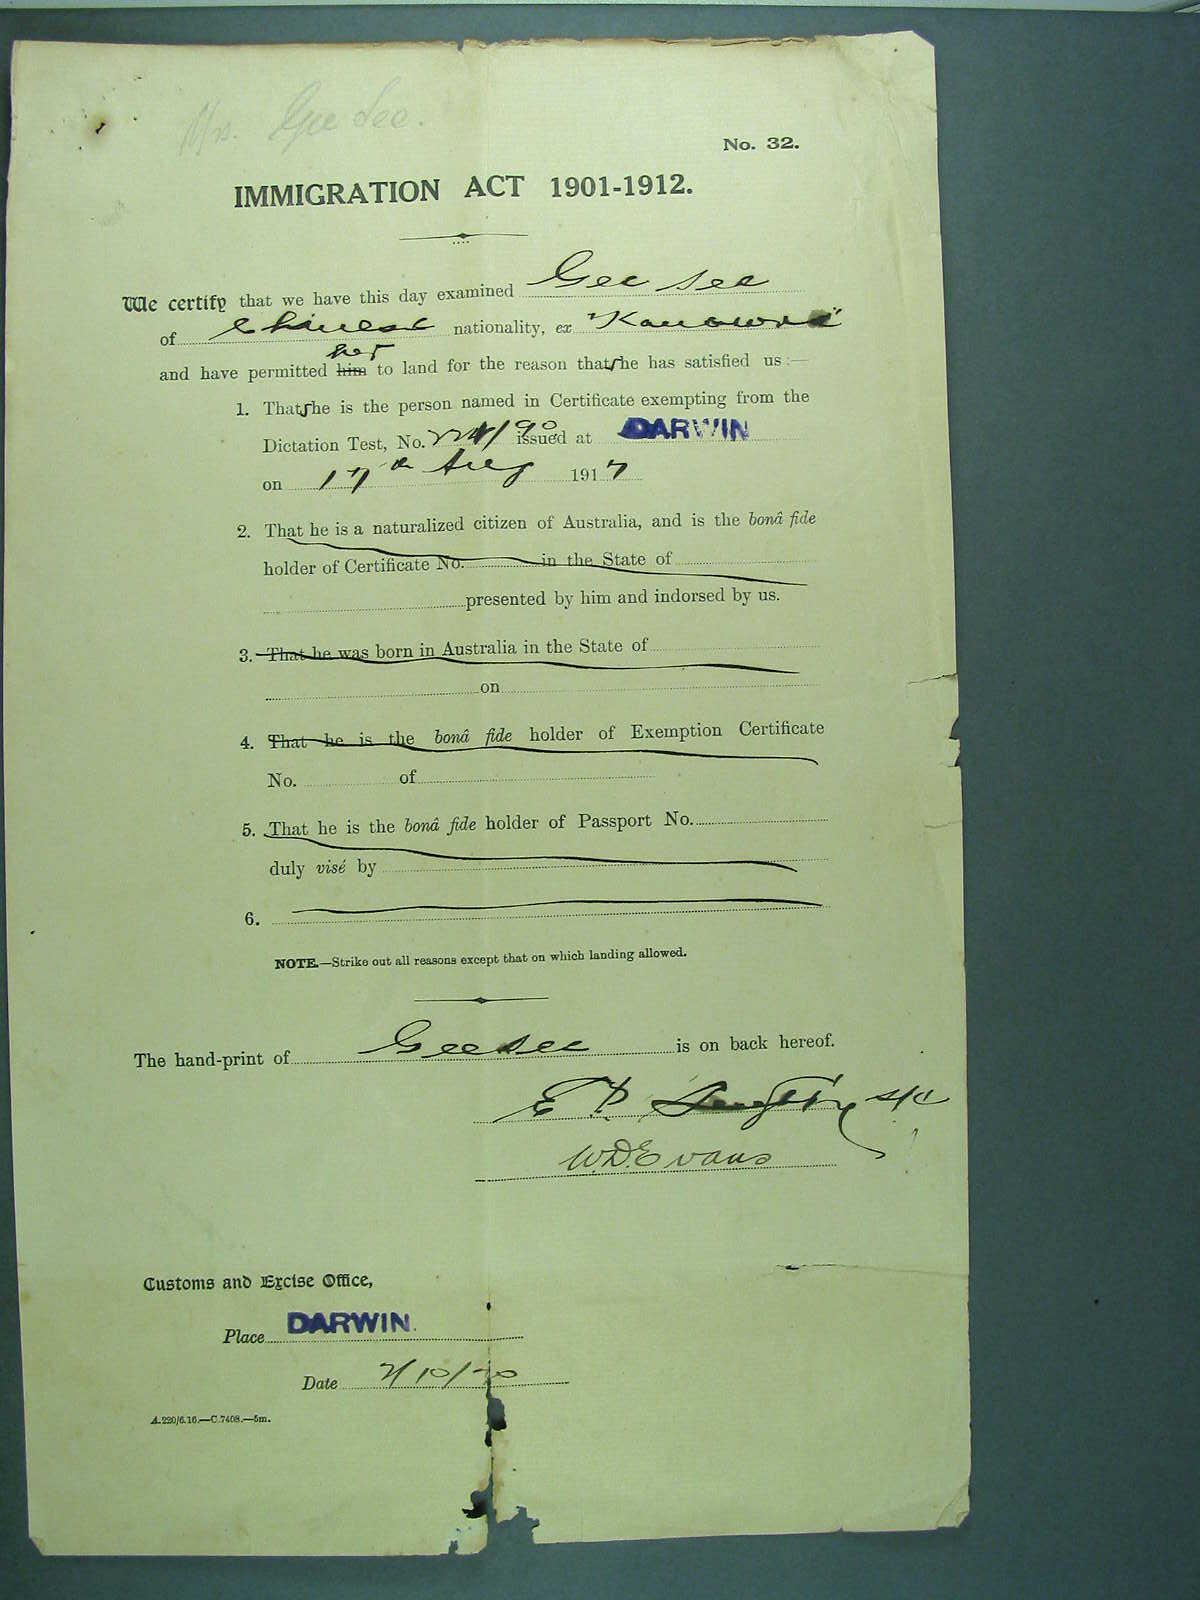 Mrs. Gee See.
No. 32.
IMMIGRATION ACT 1901-1912.
We certify that we have this day examined Gee See
of Chinese nationality, ex "Kanowna"
her
and have permitted him to land for the reason that she has satisfied us :—
1. That she is the person named in Certificate exempting from the
Dictation Test, No. 224/90 issued at DARWIN
on 17th Aug 1917
2. That he is a naturalized citizen of Australia, and is the bonâ fide
holder of Certificate No. in the State of
presented by him and indorsed by us.
3. That he was born in Australia in the State of
on
4. That he is the bonâ fide holder of Exemption Certificate
No. of
5. That he is the bonâ fide holder of Passport No.
duly visé by
6.
NOTE.—Strike out all reasons except that on which landing allowed.
The hand-print of Gee See is on back hereof.
E P
W.D. Evans
Customs and Excise Office,
Place DARWIN.
Date 2/10/20
A.220/6.16.—C.7408.—5m.